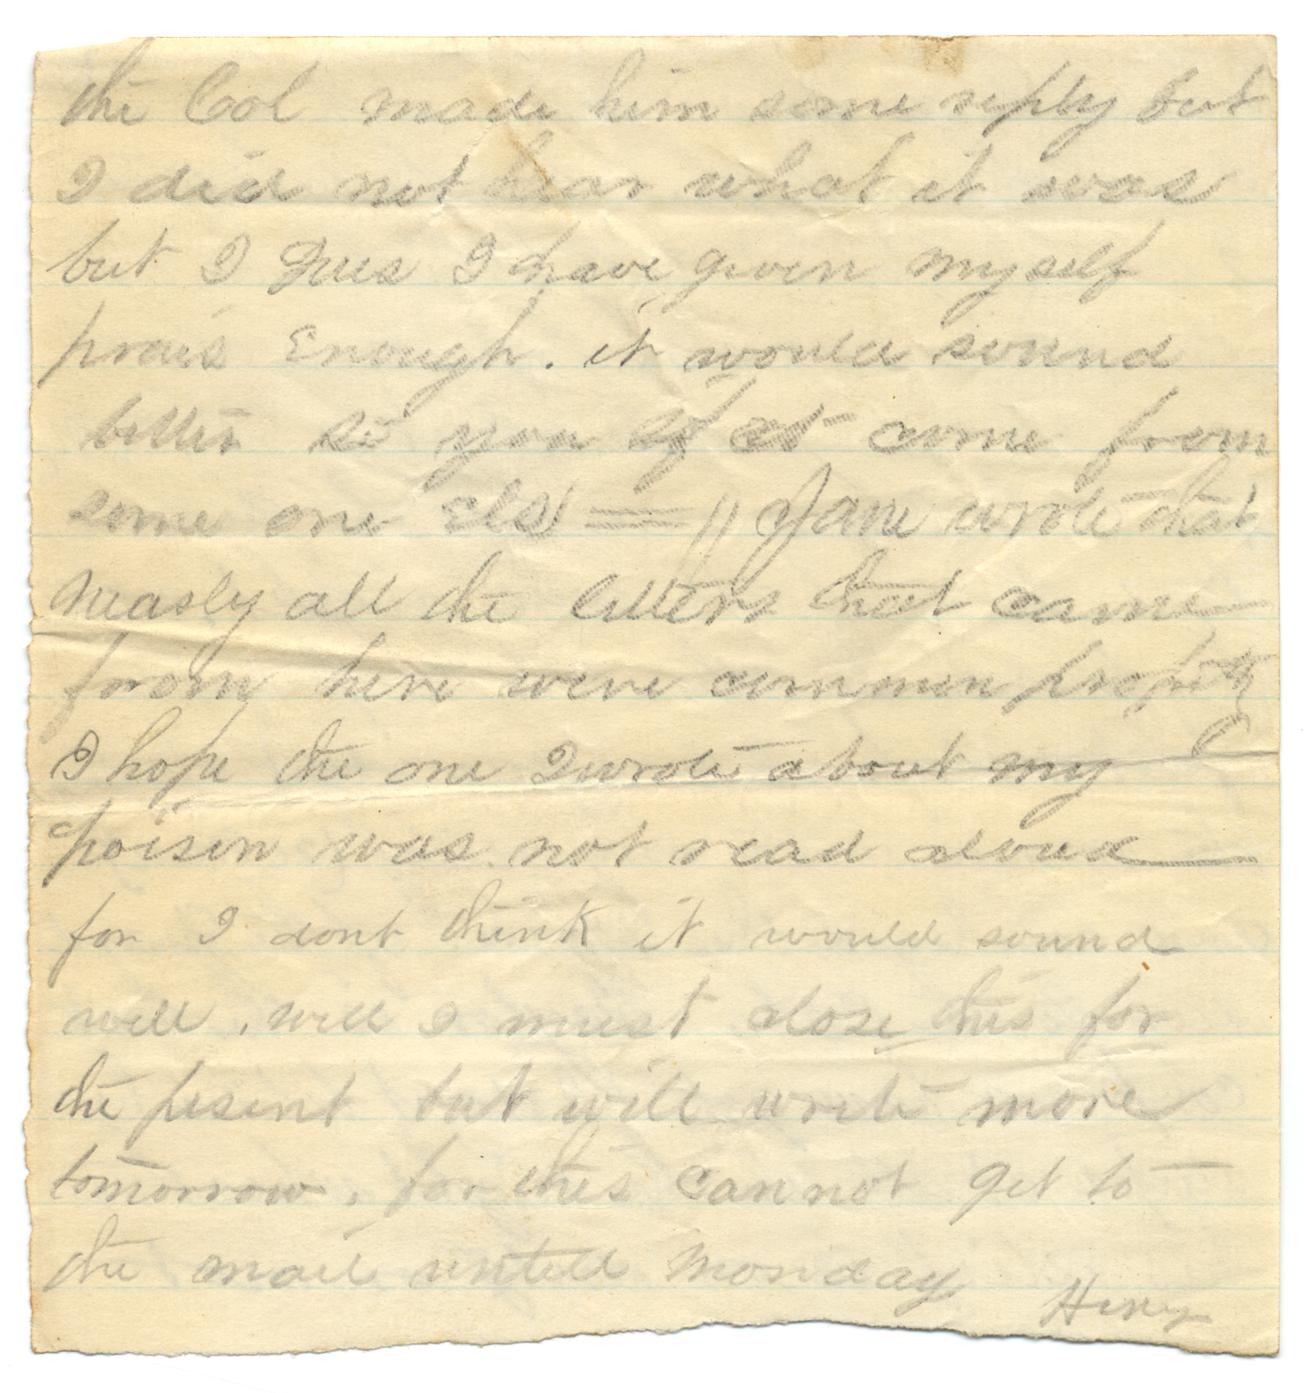 the Col made him some reply but
I did not hear what it was
but I gues I have given myself
prais Enough. it would sound
better to you if it come from
some one Els = // Jane wrote that
nearly all the letters that came
forom here were common property
I hope the one I wrote about my
poisen was not read aloud
for I dont think it would sound
well. well I must close this for
the pesent but will write more
tomorrow, for this cannot get to
the mail untill Monday
Henry